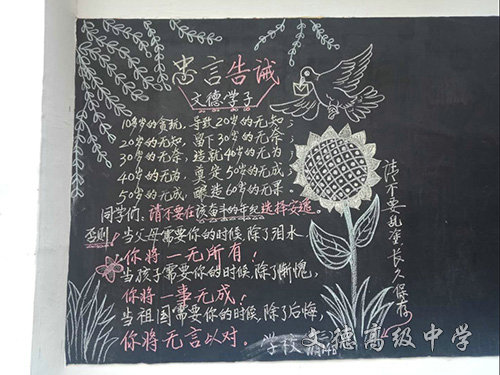 忠言告诫
文德学子
10多岁的贪玩,导致20岁的无知;
20岁的无知,留下30岁的无奈;
30岁的无奈,造就40岁的无为;
40岁的无为,奠定50岁的无成;
50岁的无成,酿造60岁的无果。
同学们,请不要在该奋斗的年纪选择安逸。
否则!当父母需要你的时候,除了泪水,
你将一无所有!
当孩子需要你的时候,除了惭愧,
你将一事无成!
当祖国需要你的时候,除了后悔,
你将无言以对。
学校
请不要乱塗长久保存
文德高级中学